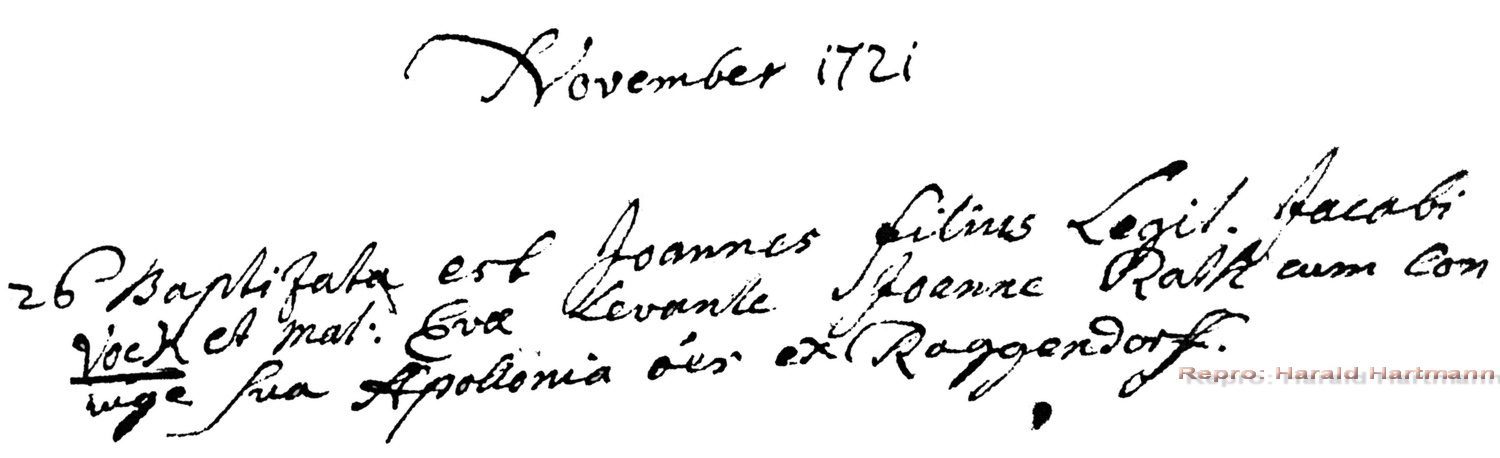 November 1721
26 Baptizata est Joannes filius Legit. Jacobi
Vock et mat: Evæ Levante Joanne Rath cum con
iuge sua Apollonia oës ex Raggendorf.
Repro: Harald Hartmann